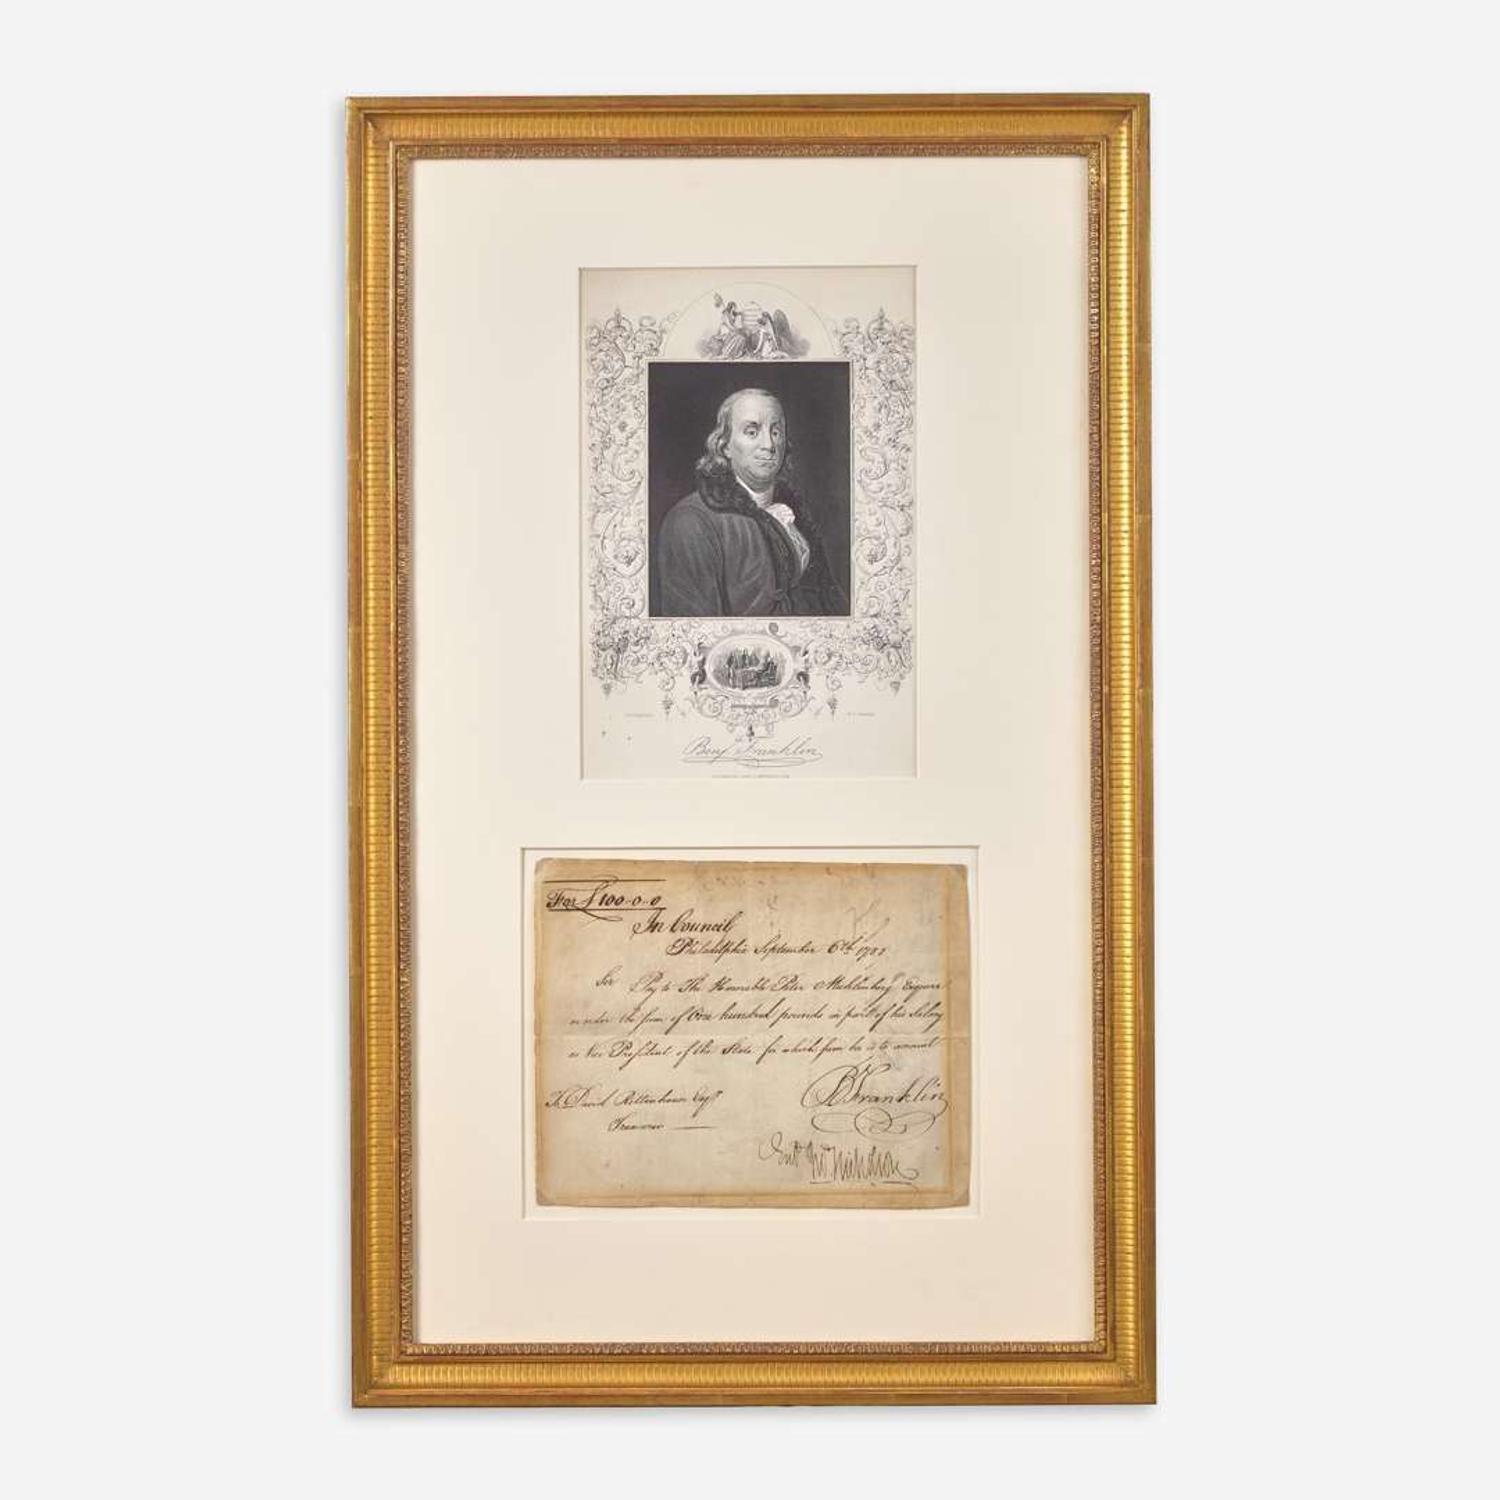 Benj Franklin
For £100-0-0
In Council
Philadelphia September 6th 1788
Sir Pay to The Honorable Peter Muhlenberg Esquire
order the sum of One hundred pounds in part of his Salary
as Vice President of the State for which sum he is to account
To David Rittenhouse Esqr
Treasurer
B Franklin
Jno Nicholson